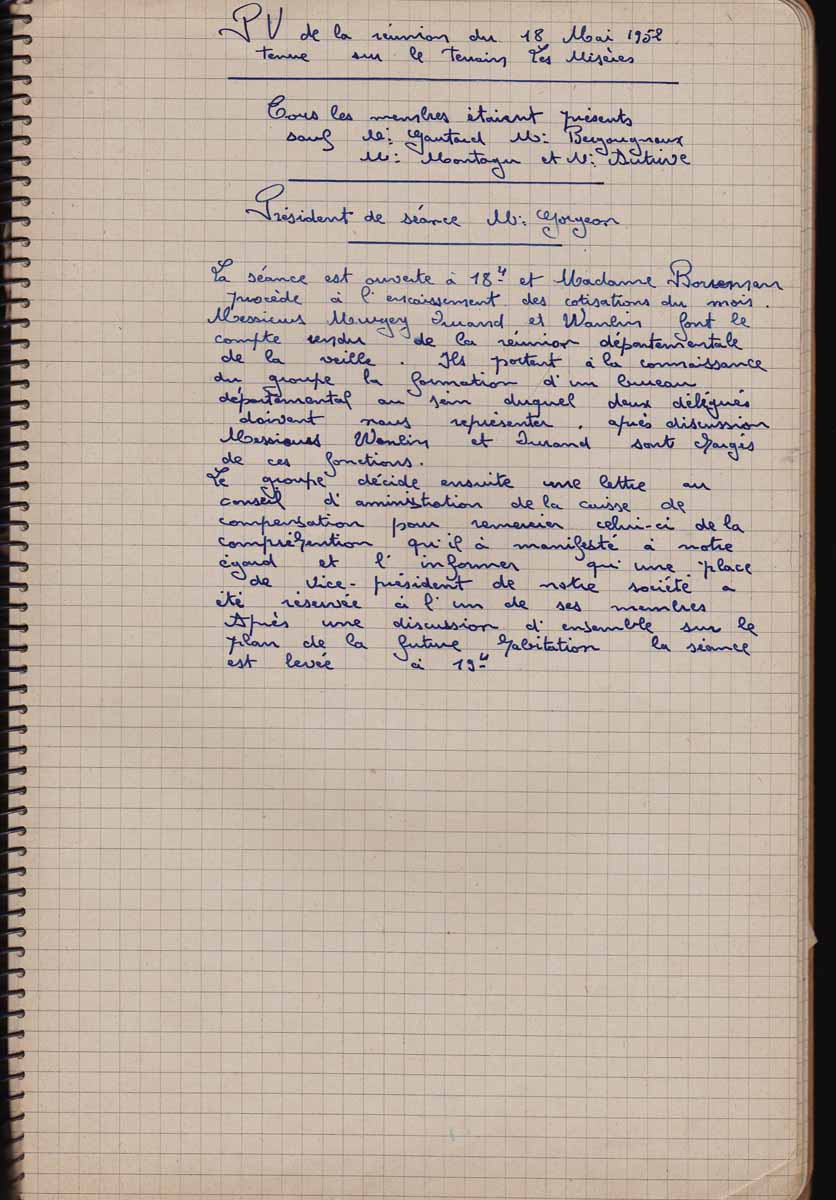 PV de la réunion du 18 Mai 1952
tenue sur le terrain Les Misères
Tous les membres étaient présents
sauf Mr: Gautard Mr: Bergougnoux
Mr: Montagu et Mr:
Président de séance Mr: Gorgeon
La séance est ouverte à 18H et Madame
procède à l'encaissement des cotisations du mois.
Messieurs Murgey Durand et Wanlin font le
compte rendu de la réunion départementale
de la veille. Ils portent à la connaissance
du groupe la formation d'un bureau
départemental au sein duquel deux délégués
doivent nous représenter. après discussion
Messieurs Wanlin et Durand sont chargés
de ces fonctions.
Le groupe décide ensuite une lettre au
conseil d'aministration de la caisse de
compensation pour remercier celui-ci de la
compréhention qu'il à manifesté à notre
égard et l'informer qu'une place
de vice-président de notre société a
été réservée à l'un de ses membres
Après une discussion d'ensemble sur le
plan de la future habitation la séance
est levée à 19H